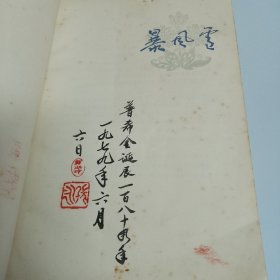 暴风雪
普希金诞辰一百八十年
一九七九年六月
六日